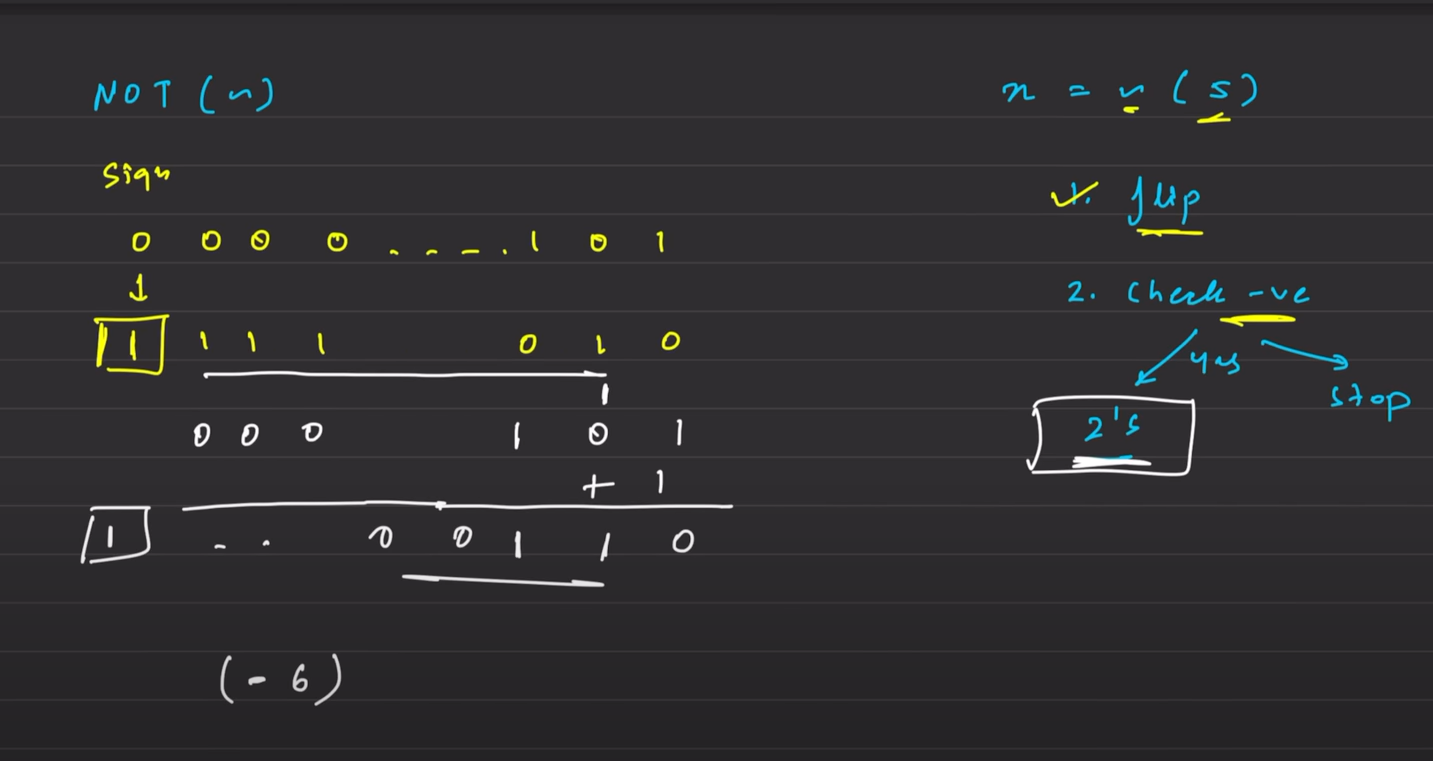 NOT (~)
Sign
0 0 0 0 . - - - . 1 0 1
↓
1 1 1 1 0 1 0
1
0 0 0 1 0 1
+ 1
1 - . 0 0 1 1 0
(- 6)
x = ~ (5)
1. flip
2. Check -ve
yes
stop
2's